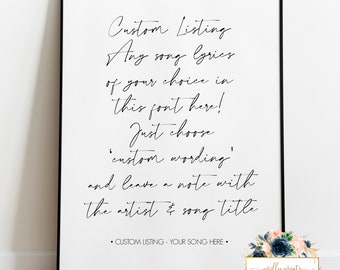 Custom Listing
Any song lyrics
of your choice in
this font here!
Just choose
'custom wording'
and leave a note with
the artist & song title
• CUSTOM LISTING - YOUR SONG HERE •